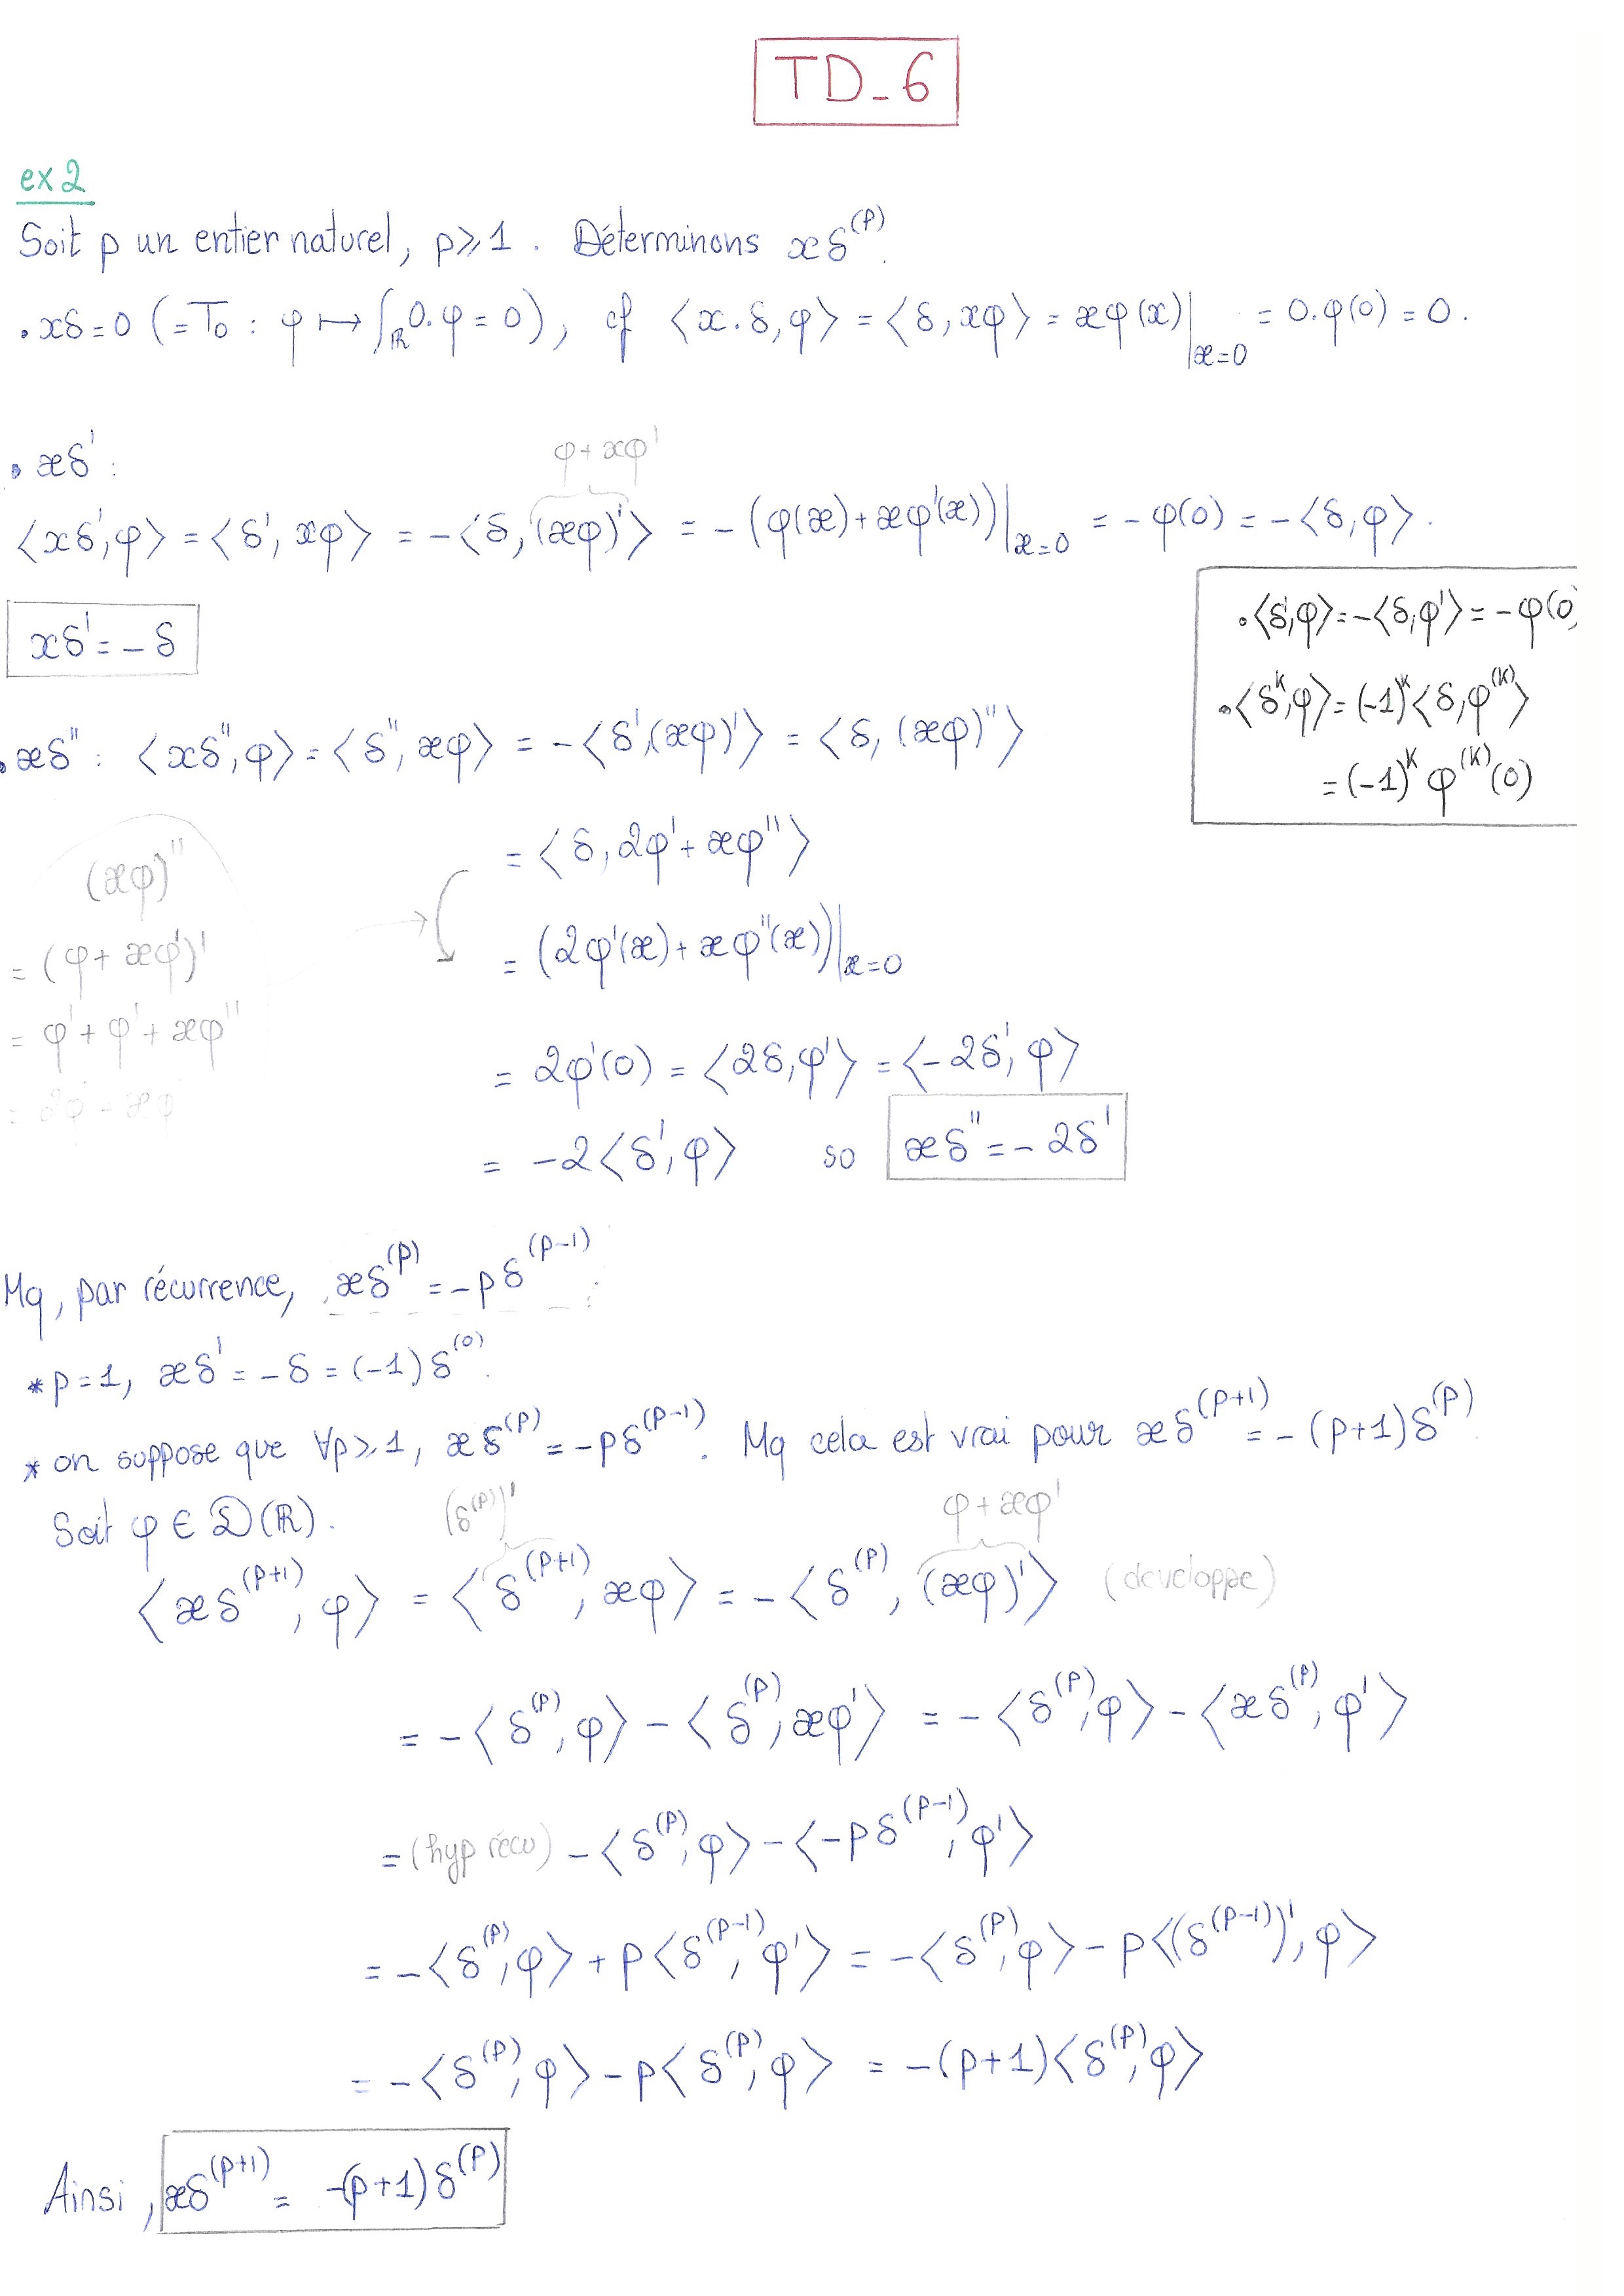 TD_6
ex2
Soit p un entier naturel, p⩾1. Déterminons xδ^(p).
• xδ=0 (=T₀ : φ ↦ ∫_ℝ 0.φ = 0), cf ⟨x.δ,φ⟩ = ⟨δ, xφ⟩ = xφ(x)|_{x=0} = 0.φ(0) = 0.
• xδ' :
φ + xφ'
⟨xδ',φ⟩ = ⟨δ', xφ⟩ = -⟨δ, (xφ)'⟩ = -(φ(x)+xφ'(x))|_{x=0} = -φ(0) = -⟨δ,φ⟩.
xδ' = -δ
• ⟨δ',φ⟩ = -⟨δ,φ'⟩ = -φ(0)
• ⟨δ^k,φ⟩ = (-1)^k ⟨δ,φ^(k)⟩
= (-1)^k φ^(k)(0)
• xδ'' : ⟨xδ'',φ⟩ = ⟨δ'', xφ⟩ = -⟨δ',(xφ)'⟩ = ⟨δ, (xφ)''⟩
= ⟨δ, 2φ' + xφ''⟩
(xφ)''
= (φ + xφ')'
= φ' + φ' + xφ''
= (2φ'(x) + xφ''(x))|_{x=0}
= 2φ'(0) = ⟨2δ,φ'⟩ = ⟨-2δ', φ⟩
= -2⟨δ', φ⟩ so xδ'' = -2δ'
Mq, par récurrence, xδ^(p) = -pδ^(p-1).
* p=1, xδ' = -δ = (-1)δ^(0).
* on suppose que ∀p⩾1, xδ^(p) = -pδ^(p-1). Mq cela est vrai pour xδ^(p+1) = -(p+1)δ^(p).
Soit φ ∈ 𝒟(ℝ).
(δ^(p))' φ + xφ'
⟨xδ^(p+1), φ⟩ = ⟨δ^(p+1), xφ⟩ = -⟨δ^(p), (xφ)'⟩ (developpe)
= -⟨δ^(p),φ⟩ - ⟨δ^(p), xφ'⟩ = -⟨δ^(p),φ⟩ - ⟨xδ^(p), φ'⟩
= (hyp récu) -⟨δ^(p),φ⟩ - ⟨-pδ^(p-1), φ'⟩
= -⟨δ^(p),φ⟩ + p⟨δ^(p-1), φ'⟩ = -⟨δ^(p),φ⟩ - p⟨(δ^(p-1))', φ⟩
= -⟨δ^(p),φ⟩ - p⟨δ^(p),φ⟩ = -(p+1)⟨δ^(p),φ⟩
Ainsi, xδ^(p+1) = -(p+1)δ^(p)